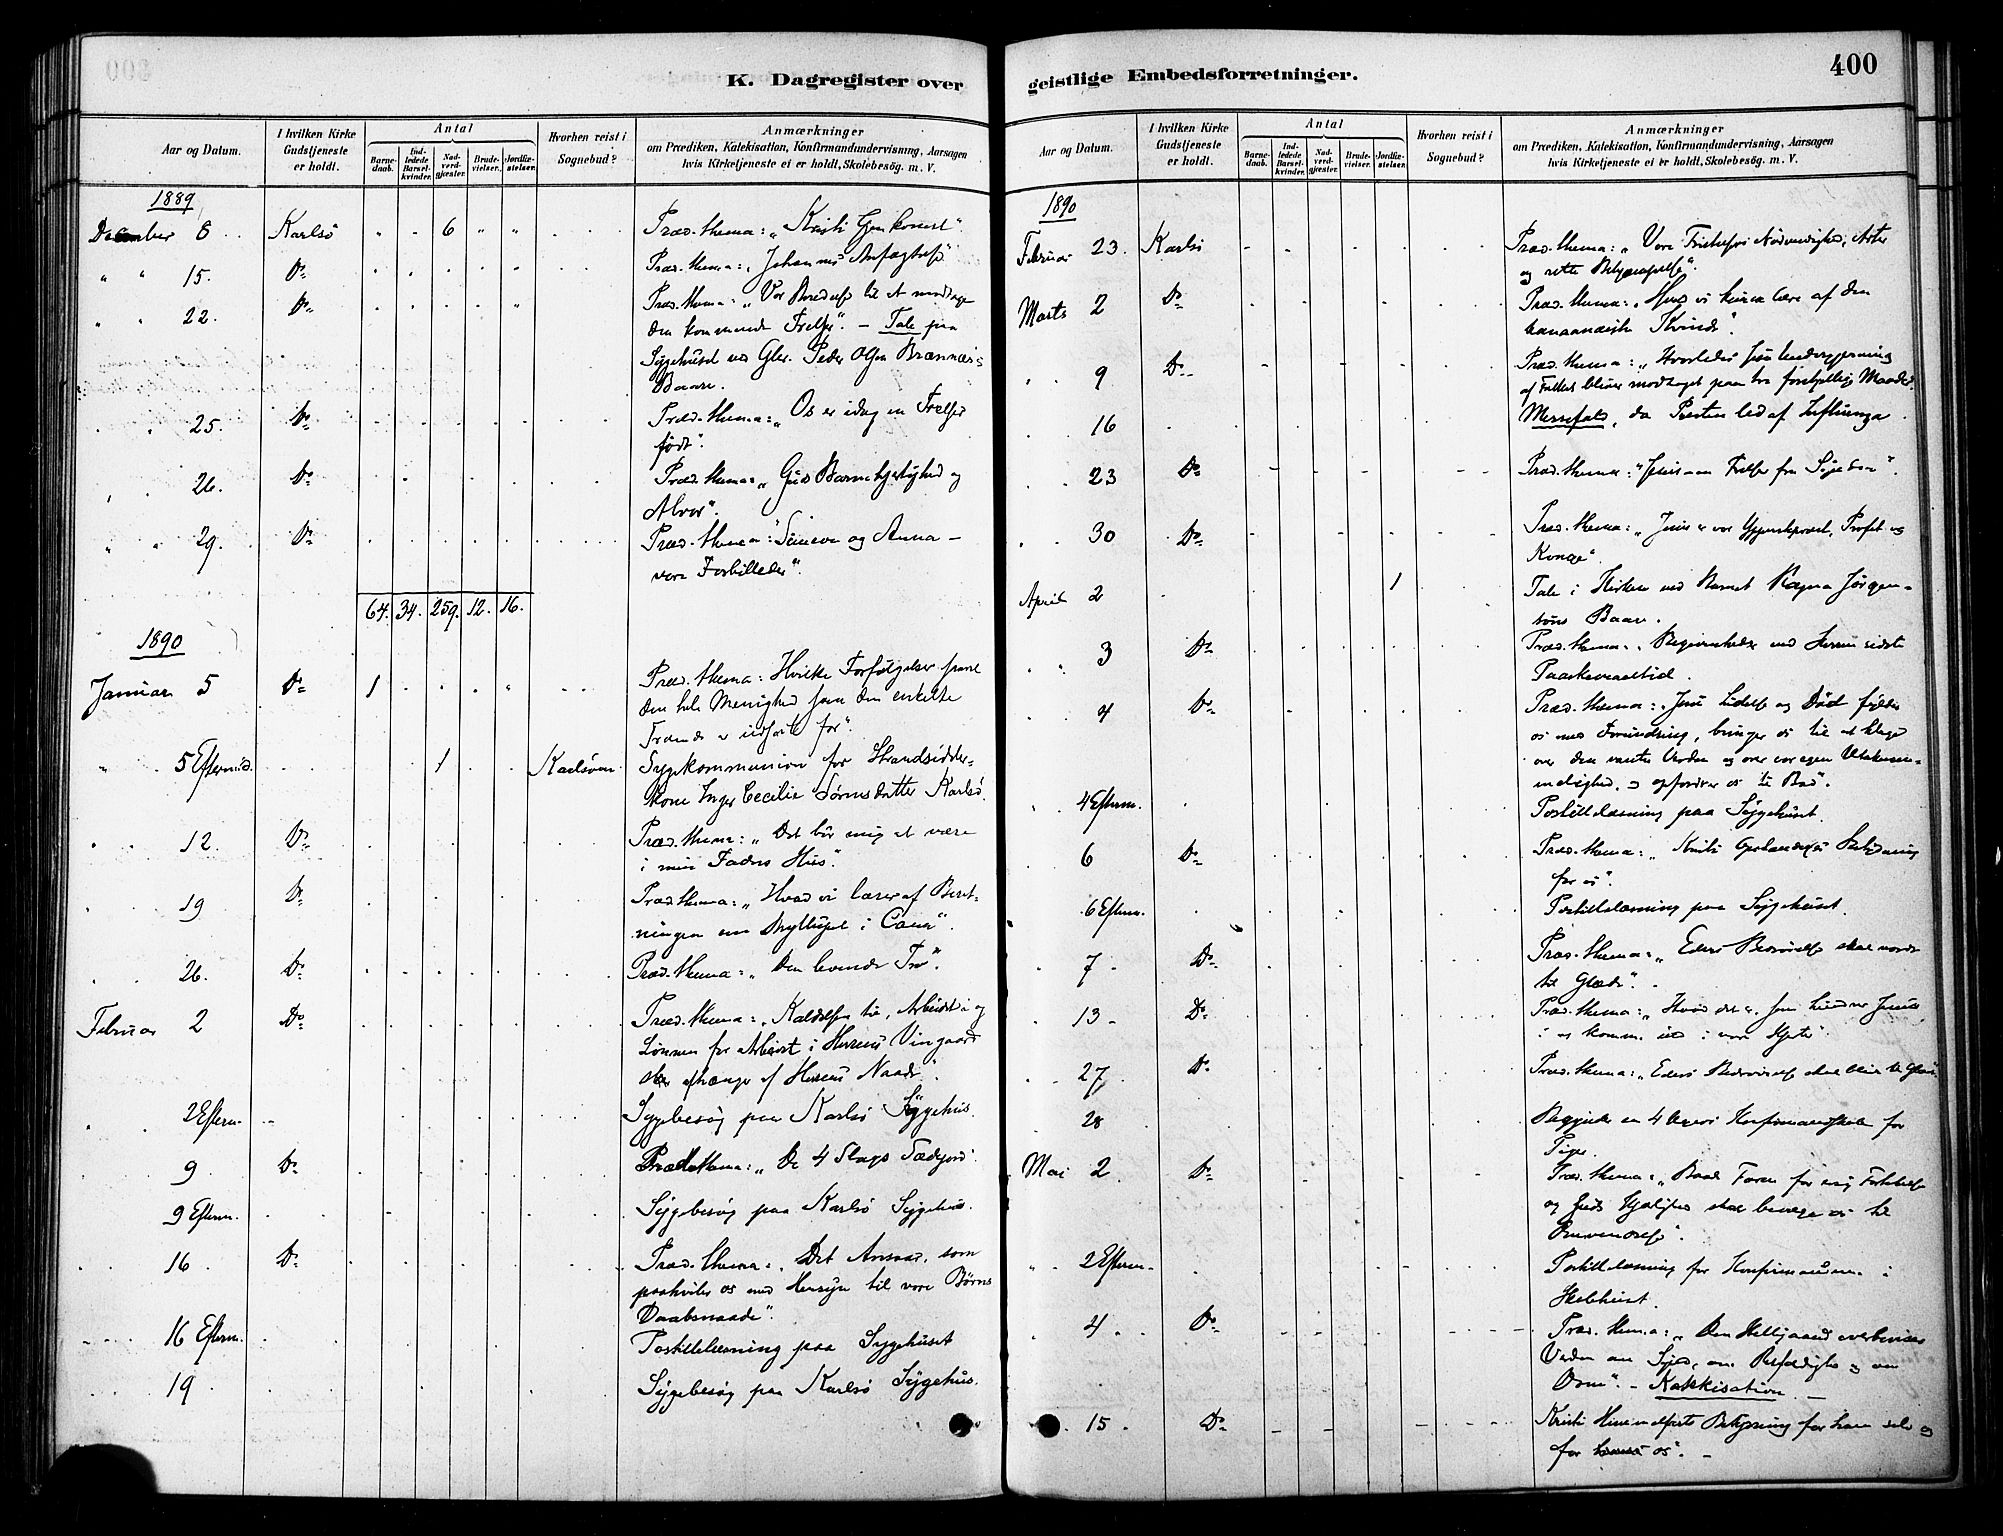 K. Dagregister over
Aar og Datum.
I hvilken Kirke Gudstjeneste er holdt.
Antal
Barnedaab.
Indledede Barselkvinder.
Nadverdgjæster.
Brudevielser.
Jordfæstelser.
Hvorhen reist i Sognebud?
Anmærkninger
om Prædiken, Katekisation, Konfirmandundervisning, Aarsagen
hvis Kirketjeneste ei er holdt, Skolebesøg. m. V.
1889
December 8 Karlsö 6 Præd. thema: „Kristi Gjenkomst“
15. Do Præd. thema: „Johannes Anfægtelse“
22. Do Præd. thema: „Vor Beredelse til at modtage
den kommende Frelser“. – Tale paa
Sygehuset ved Peder Olsen Brænnæs's
Baare.
25. Do Præd. thema: „Os er idag en Frelser
født“.
26. Do Præd. thema: „Guds Barmhjertighed og
Alvor“.
29. Do Præd. thema: „Simeon og Anna –
vore Forbilleder“.
64. 34. 259. 12. 16.
1890
Januar 5 Do 1 Præd. thema: Hvilke Forfølgelser
den hele Menighed som den enkelte
er udsat for“.
5 Efterm. 1 Karlsöen Sygekommunion for Strandsidder-
kone Inger Cecilie Sørensdatter Karlsö.
12. Do Præd. thema: „Det bør mig at være
i min Faders Hus“.
19 Do Præd. thema: „Hvad vi lærer af Beret-
ningen om Bryllupet i Cana“.
26. Do Præd. thema: „Den levende Tro“.
Februar 2 Do Præd. thema: „Kaldelsen til, Arbeidet i og
Lønnen for Arbeidet i Herrens Vingaard
afhænger af Herrens Naade“.
2 Efterm. Sygebesøg paa Karlsö Sygehus.
9 Do Præd. thema: „De 4 Slags Sædejord“
9 Efterm. Sygebesøg paa Karlsö Sygehus.
16 Do Præd. thema: „Det Ansvar, som
paahviler os med Hensyn til vore Børns
Daabsnaade“.
16 Efterm. Postillelæsning paa Sygehuset
19 Sygebesøg paa Karlsö Sygehus.
geistlige Embedsforretninger.
400
Aar og Datum.
I hvilken Kirke Gudstjeneste er holdt.
Antal
Barnedaab.
Indledede Barselkvinder.
Nadverdgjæster.
Brudevielser.
Jordfæstelser.
Hvorhen reist i Sognebud?
Anmærkninger
om Prædiken, Katekisation, Konfirmandundervisning, Aarsagen
hvis Kirketjeneste ei er holdt, Skolebesøg. m. V.
1890
Februar 23. Karlsö Præd. thema: „Vore Fristelsers Nødvendighed, Arter
og rette Bekjæmpelse“.
Marts 2 Do Præd. thema: „Hvad vi kunne lære af den
kananæiske Kvinde“.
9 Do Præd. thema: „Hvorledes Jesu Undergjerning
af Folket bliver modtaget paa tre forskjellige Maader.
16 Messefald, da Presten led af Influenza
23 Do Præd. thema: „Jesus en Frelser fra
30 Do Præd. thema: „Jesus er vor Ypperstepræst, Profet og
Konge“.
April 2 1 Tale i Kirken ved Barnet Ragna Jørgen-
sens Baare.
3 Do Præd. thema: Begivenheder ved Herrens sidste
Paaskemaaltid.
4 Do Præd. thema: „Jesu Lidelse og Død fylder
os med Forundring, bringer os til at klage
over den vantro Verden og over vor egen Utaknem-
melighed, og opfordrer os til Bod“.
4 Efterm. Postillelæsning paa Sygehuset.
6 Do Præd. thema: „Kristi Opstandelses Betydning
for os“.
6 Efterm. Postillelæsning paa Sygehuset.
7 Do Præd. thema: „Eders Bedrøvelse skal vorde
til Glæde“.
13 Do Præd. thema: „Hvad det er, som hindrer Jesus
i at komme ind i vore Hjerter“
27 Do Præd. thema: „Eders Bedrøvelse skal blive til Glæde“
28 Begynder en 4 Ugers Konfirmandskole for
Piger.
Mai 2 Do Præd. thema: „Baade Faren for evig Fortabelse
og Guds Kjærlighed skal bevæge os til
Omvendelse“.
2 Efterm. Postillelæsning for Konfirmanderne i
Skolehuset.
4 Do Præd. thema: „Den Helligaand overbeviser
Verden om Synd, om Retfærdighed og om
Dom“. – Katekisation. –
15 Do Kristi Himmelfarts Betydning for ham selv og
for os“. –